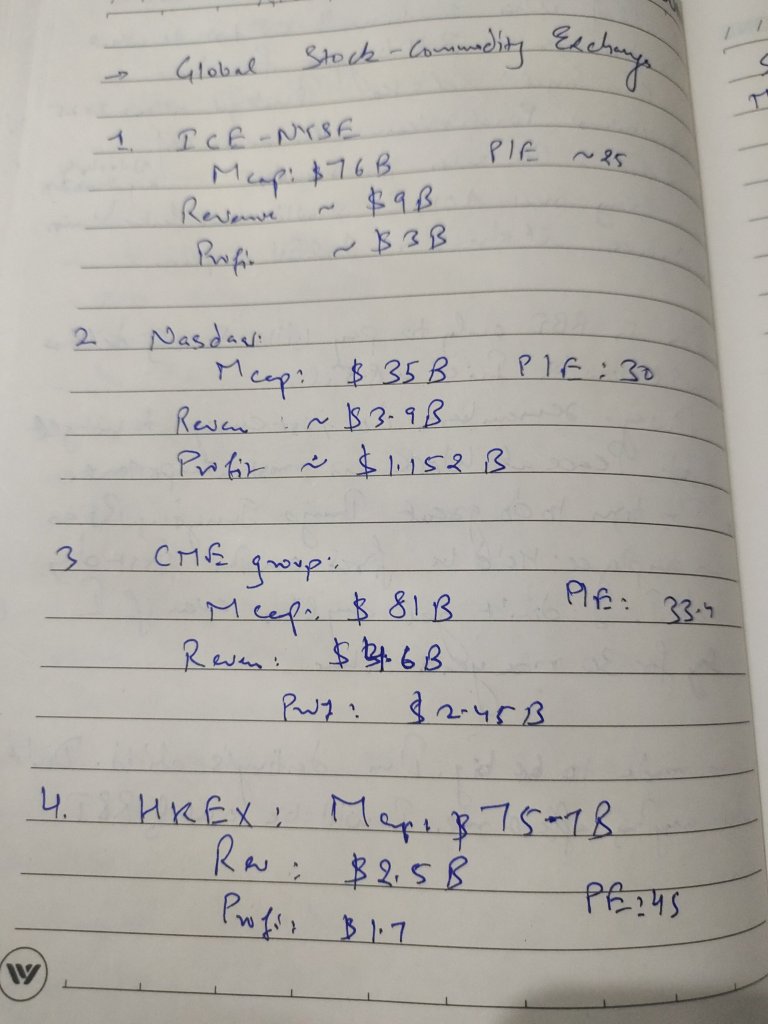 → Global Stock-Commodity Exchange
1. ICE-NYSE
Mcap: $76B P/E ~25
Revenue ~ $9B
Profi ~ $3B
2 Nasdaq:
Mcap: $35B P/E: 30
Reven ~ $3.9B
Profit ~ $1.152 B
3 CME group:
Mcap: $81B P/E: 33.4
Reven: $4.6B
Prof: $2.45B
4. HKEX: Mcap: $75.7B
Rev: $2.5B
PE: 45
Profi: $1.7
W